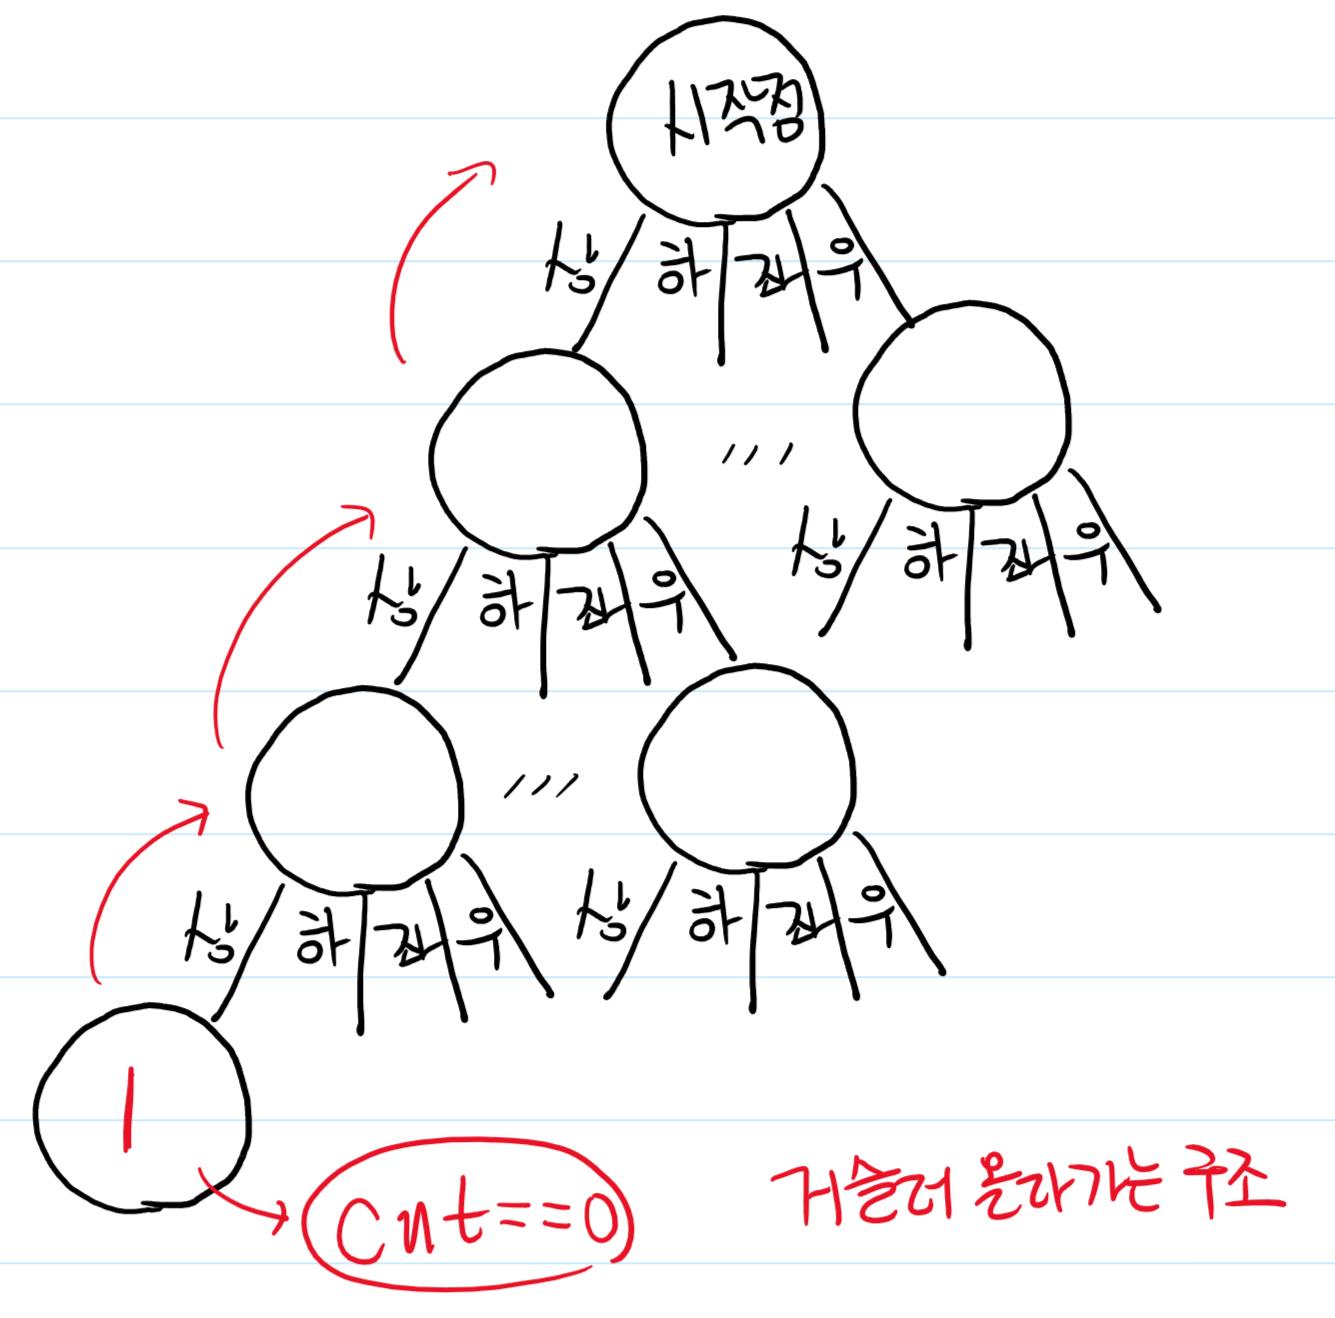 시작점
상 하 좌 우
상 하 좌 우
상 하 좌 우
상 하 좌 우
상 하 좌 우
1
cnt==0
거슬러 올라가는 구조